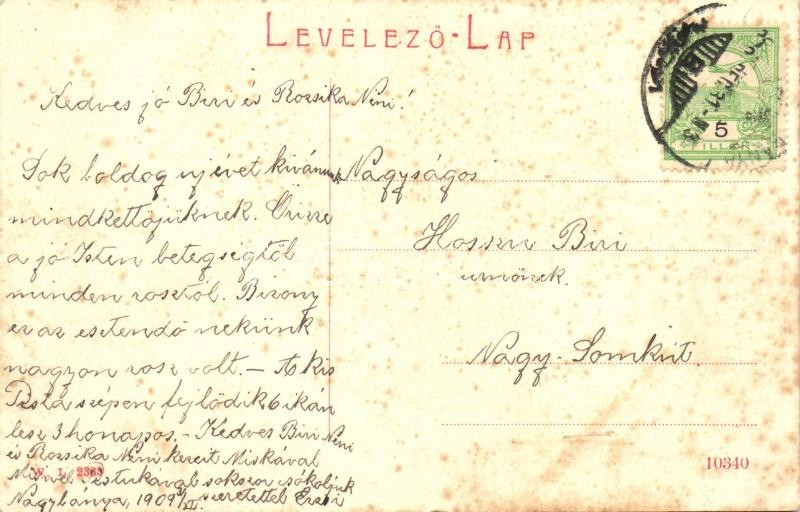 LEVELEZŐ-LAP
5
FILLÉR
Kedves jó Biri és Rozsika Néni!
Sok boldog uj évet kivánunk
mindkettőjüknek. Őrizze
a jó Isten betegségtől
minden rosztól. Bizony
ez az esztendő nekünk
nagyon rosz volt. — A kis
Pista szépen fejlődik 6 ikán
lesz 3 honapos. — Kedves Biri Néni
és Rozsika Néni kezeit Miskával
Pistukával sokszor csókoljuk
Nagybánya, 1909 XII. szeretettel Erzsi
Nagyságos
Hosszu Biri
urnőnek.
Nagy-Somkút.
W. L. 2383
10340